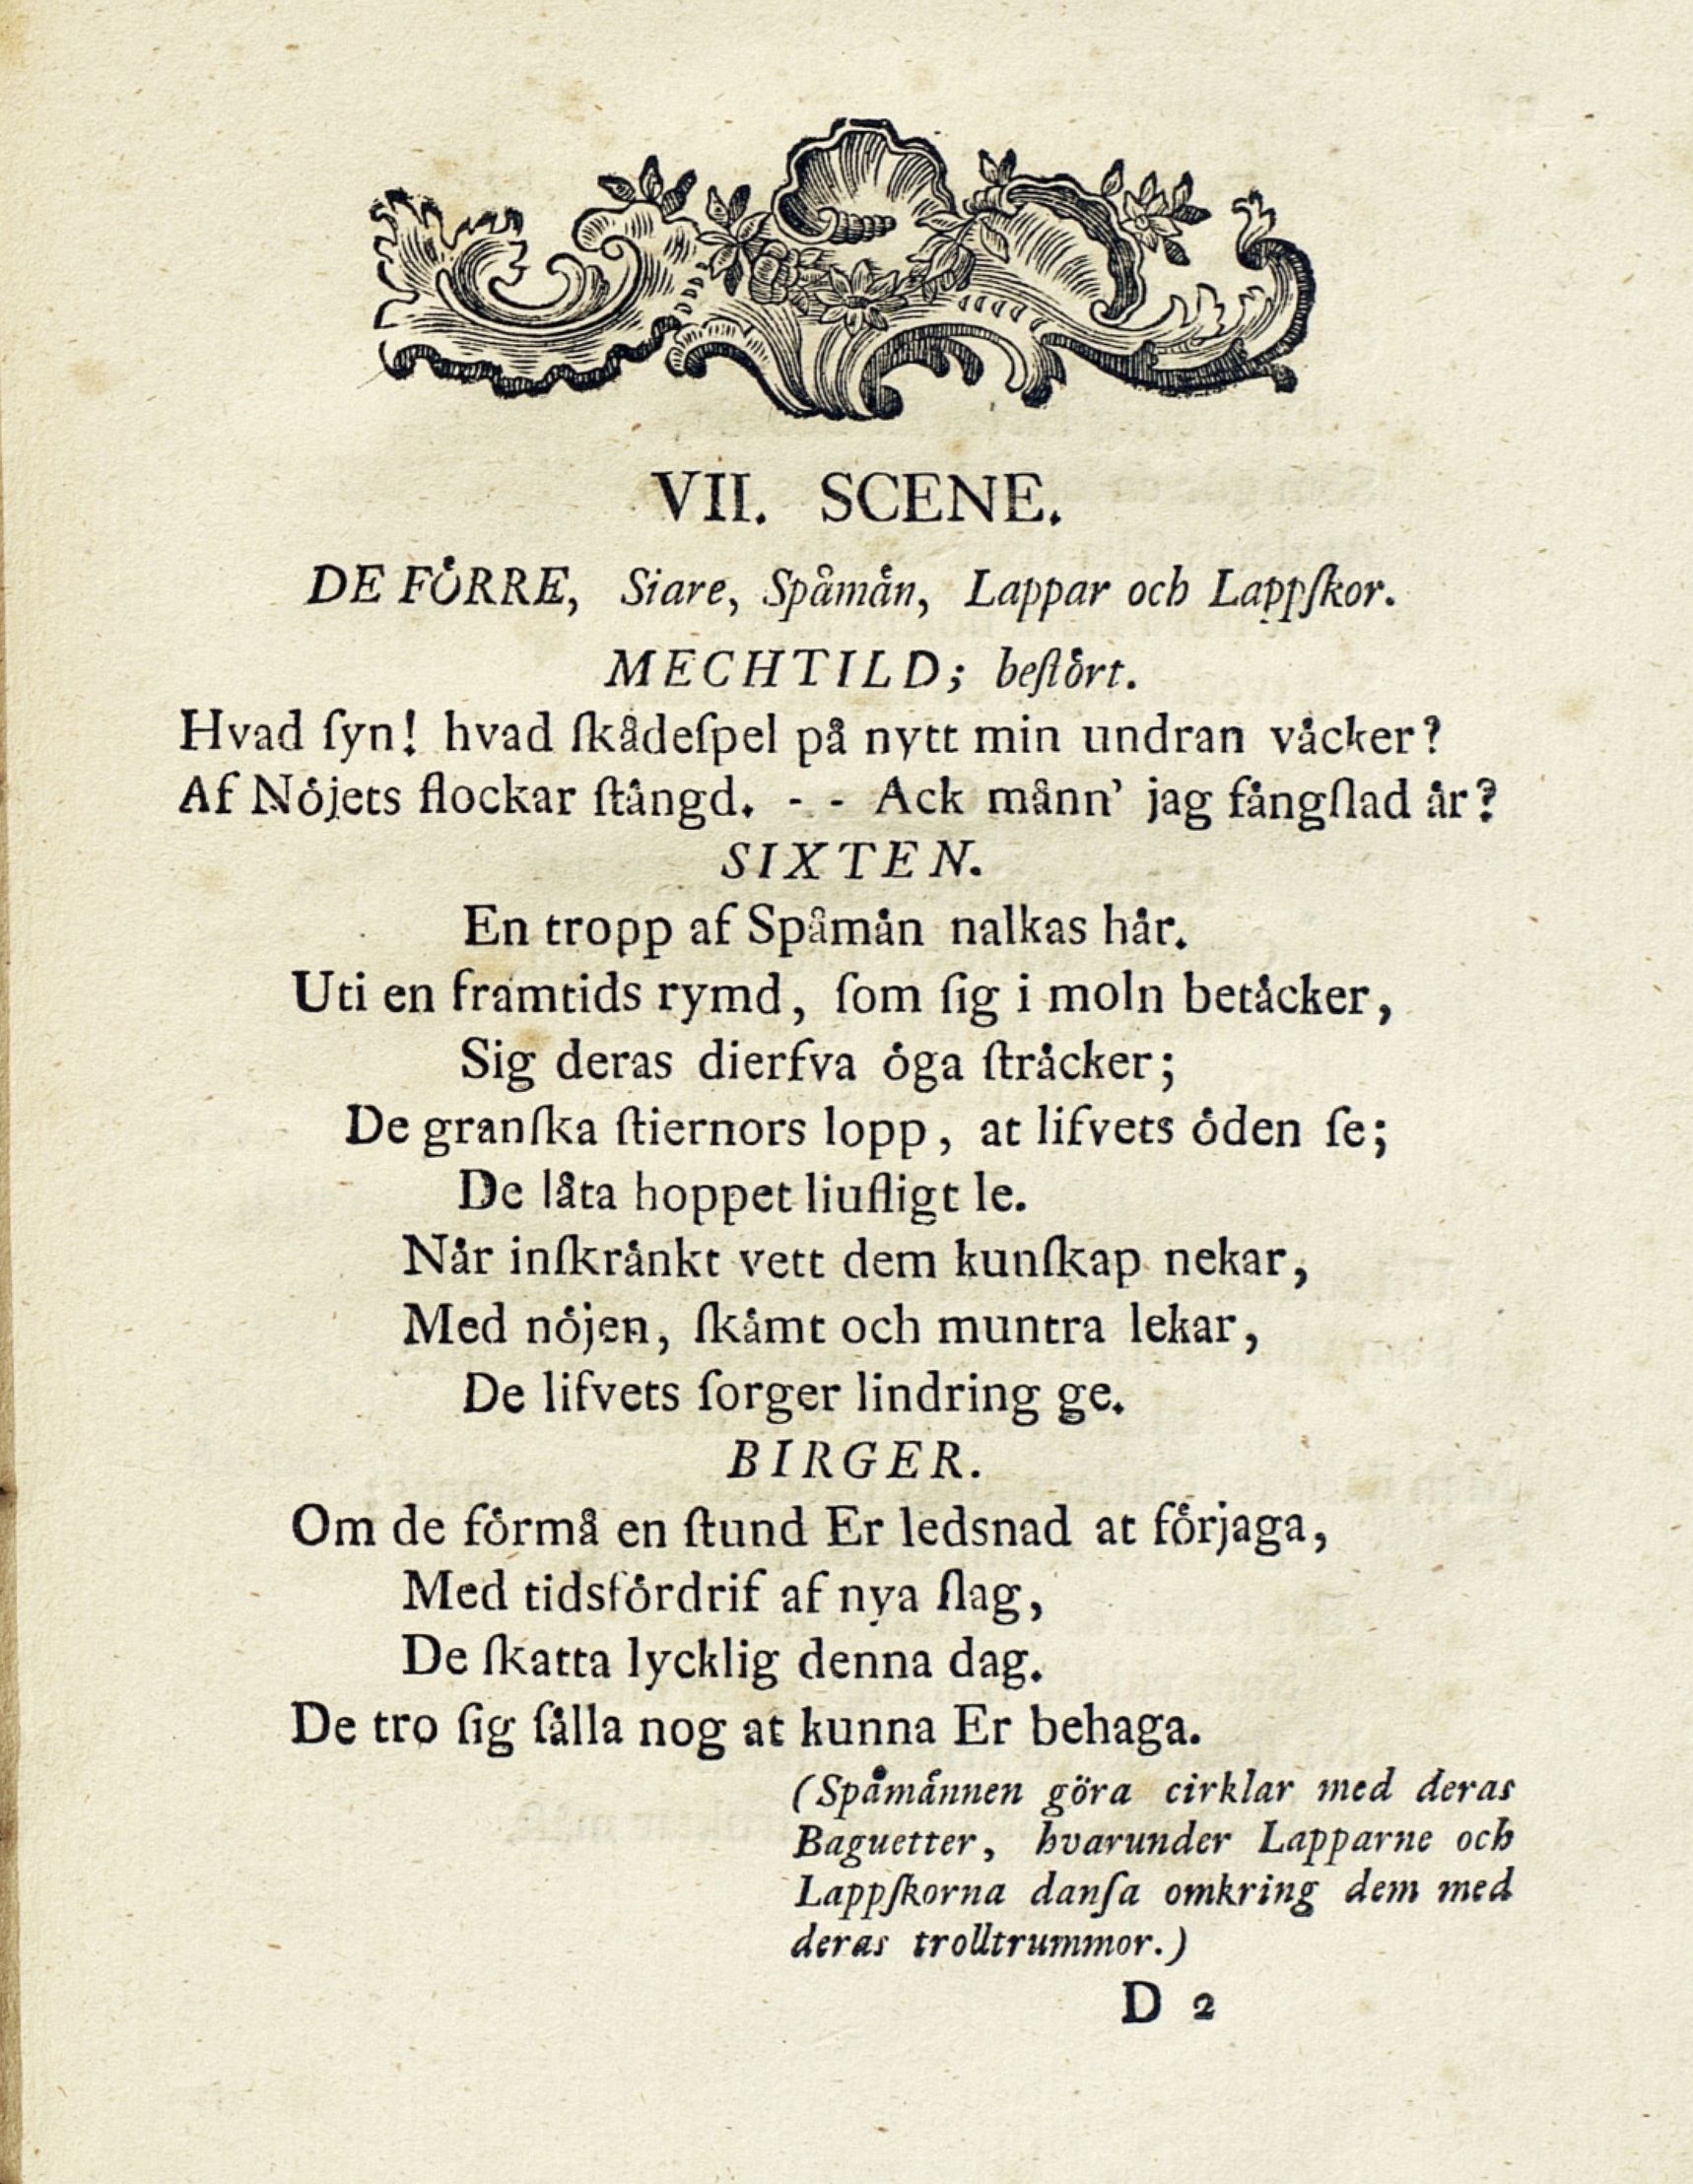 VII. SCENE.
DE FÖRRE, Siare, Spåmän, Lappar och Lappſkor.
MECHTILD; beſtört.
Hvad ſyn! hvad ſkådeſpel på nytt min undran väcker?
Af Nöjets flockar ſtängd. - - Ack männ' jag fängſlad är?
SIXTEN.
En tropp af Spåmän nalkas här.
Uti en framtids rymd, ſom ſig i moln betäcker,
Sig deras dierfva öga ſträcker;
De granſka ſtiernors lopp, at lifvets öden ſe;
De låta hoppet liufligt le.
När inſkränkt vett dem kunſkap nekar,
Med nöjen, ſkämt och muntra lekar,
De lifvets ſorger lindring ge.
BIRGER.
Om de förmå en ſtund Er ledsnad at förjaga,
Med tidsfördrif af nya ſlag,
De ſkatta lycklig denna dag.
De tro ſig ſälla nog at kunna Er behaga.
(Spåmännen göra cirklar med deras
Baguetter, hvarunder Lapparne och
Lappſkorna danſa omkring dem med
deras trolltrummor.)
D 2